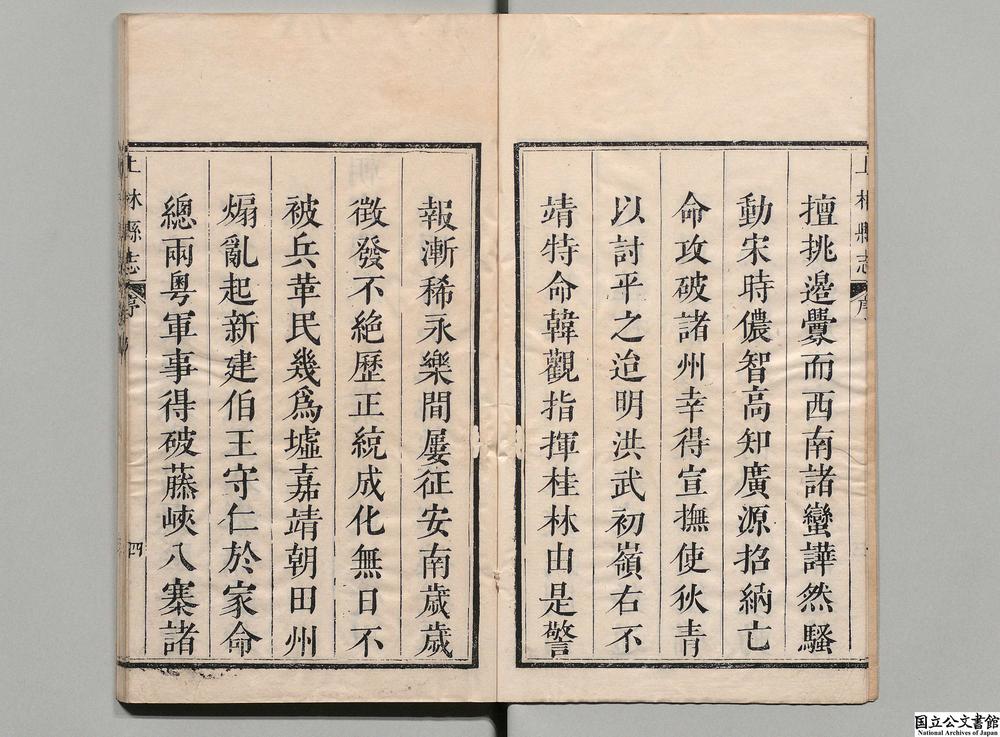 上林縣志 序
擅挑邊釁而西南諸蠻譁然騷
動宋時儂智高知廣源招納亡
命攻破諸州幸得宣撫使狄青
以討平之迨明洪武初嶺右不
靖特命韓觀指揮桂林由是警
報漸稀永樂間屢征安南歲歲
徵發不絕歷正統成化無日不
被兵革民幾爲墟嘉靖朝田州
煽亂起新建伯王守仁於家命
總兩粤軍事得破藤峽八寨諸
上林縣志 序 四
国立公文書館
National Archives of Japan